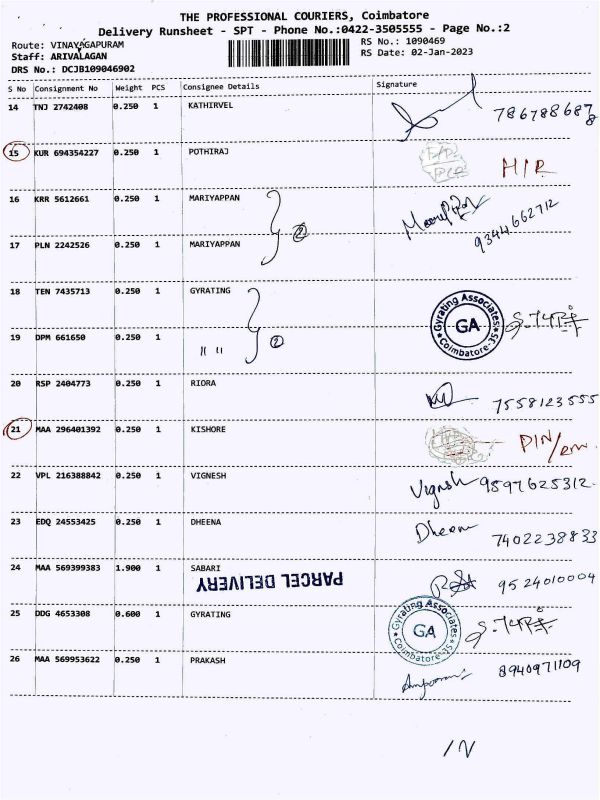 THE PROFESSIONAL COURIERS, Coimbatore
Delivery Runsheet - SPT - Phone No.:0422-3505555 - Page No.:2
Route: VINAYAGAPURAM
RS No.: 1090469
Staff: ARIVALAGAN
RS Date: 02-Jan-2023
DRS No.: DCJB109046902
S No Consignment No Weight PCS Consignee Details Signature
14 TNJ 2742408 0.250 1 KATHIRVEL 7867886878
15 KUR 694354227 0.250 1 POTHIRAJ H/R
16 KRR 5612661 0.250 1 MARIYAPPAN 9344662712
2
17 PLN 2242526 0.250 1 MARIYAPPAN
18 TEN 7435713 0.250 1 GYRATING Gyrating Associates GA Coimbatore-35
19 DPM 661650 0.250 1 " " 2
20 RSP 2404773 0.250 1 RIORA 7558123555
21 MAA 296401392 0.250 1 KISHORE
22 VPL 216388842 0.250 1 VIGNESH Vignesh 9597625312
23 EDQ 24553425 0.250 1 DHEENA Dheena 7402238833
24 MAA 569399383 1.900 1 SABARI 9524010004
PARCEL DELIVERY
25 DDG 4653308 0.600 1 GYRATING Gyrating Associates GA Coimbatore-35
26 MAA 569953622 0.250 1 PRAKASH 8940971109